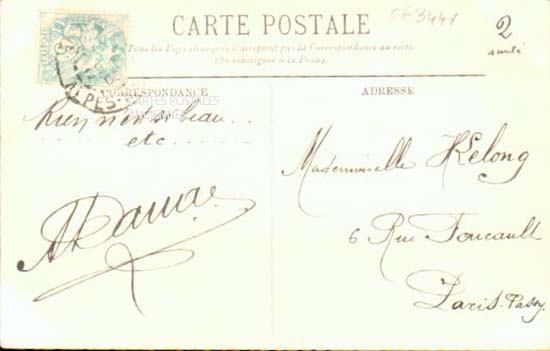 063441
2
santé
CARTE POSTALE
Tous les Pays étrangers n'acceptent pas la Correspondance au recto.
(Se renseigner à la Poste).
ALPES-
CORRESPONDANCE
ADRESSE
CARTES POSTALES
ANCIENNES
Rien n'est si beau...
etc
Mademoiselle Kelong
6 Rue Foucault
Paris-Passy